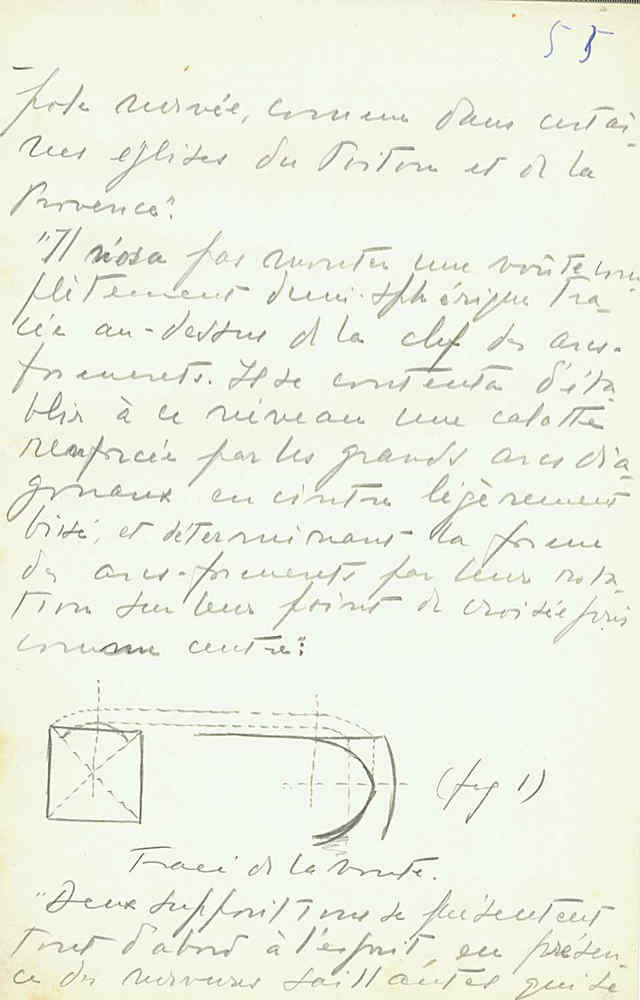 55
pole nervée, comme dans certai-
nes églises du Poitou et de la
Provence."
"Il n'osa pas monter une voûte com
plètement demi-sphérique tra-
cée au-dessus de la clef des arcs-
formerets. Il se contenta d'éta-
blir à ce niveau une calotte
renforcée par les grands arcs dia-
gonaux en cintre légèrement
brisé, et déterminant la forme
des arcs-formerets par leur rota-
tion sur leur point de croisée pris
comme centre":
(fig 1)
Tracé de la voute.
"Deux suppositions se présentent
tout d'abord à l'esprit, en présen-
ce des nervures saillantes qui se